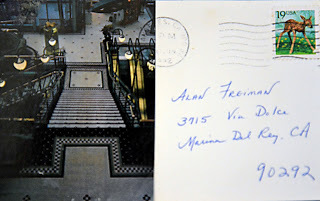 19 USA
PM
Alan Freiman
3715 Via Dolce
Marina Del Rey, CA
90292